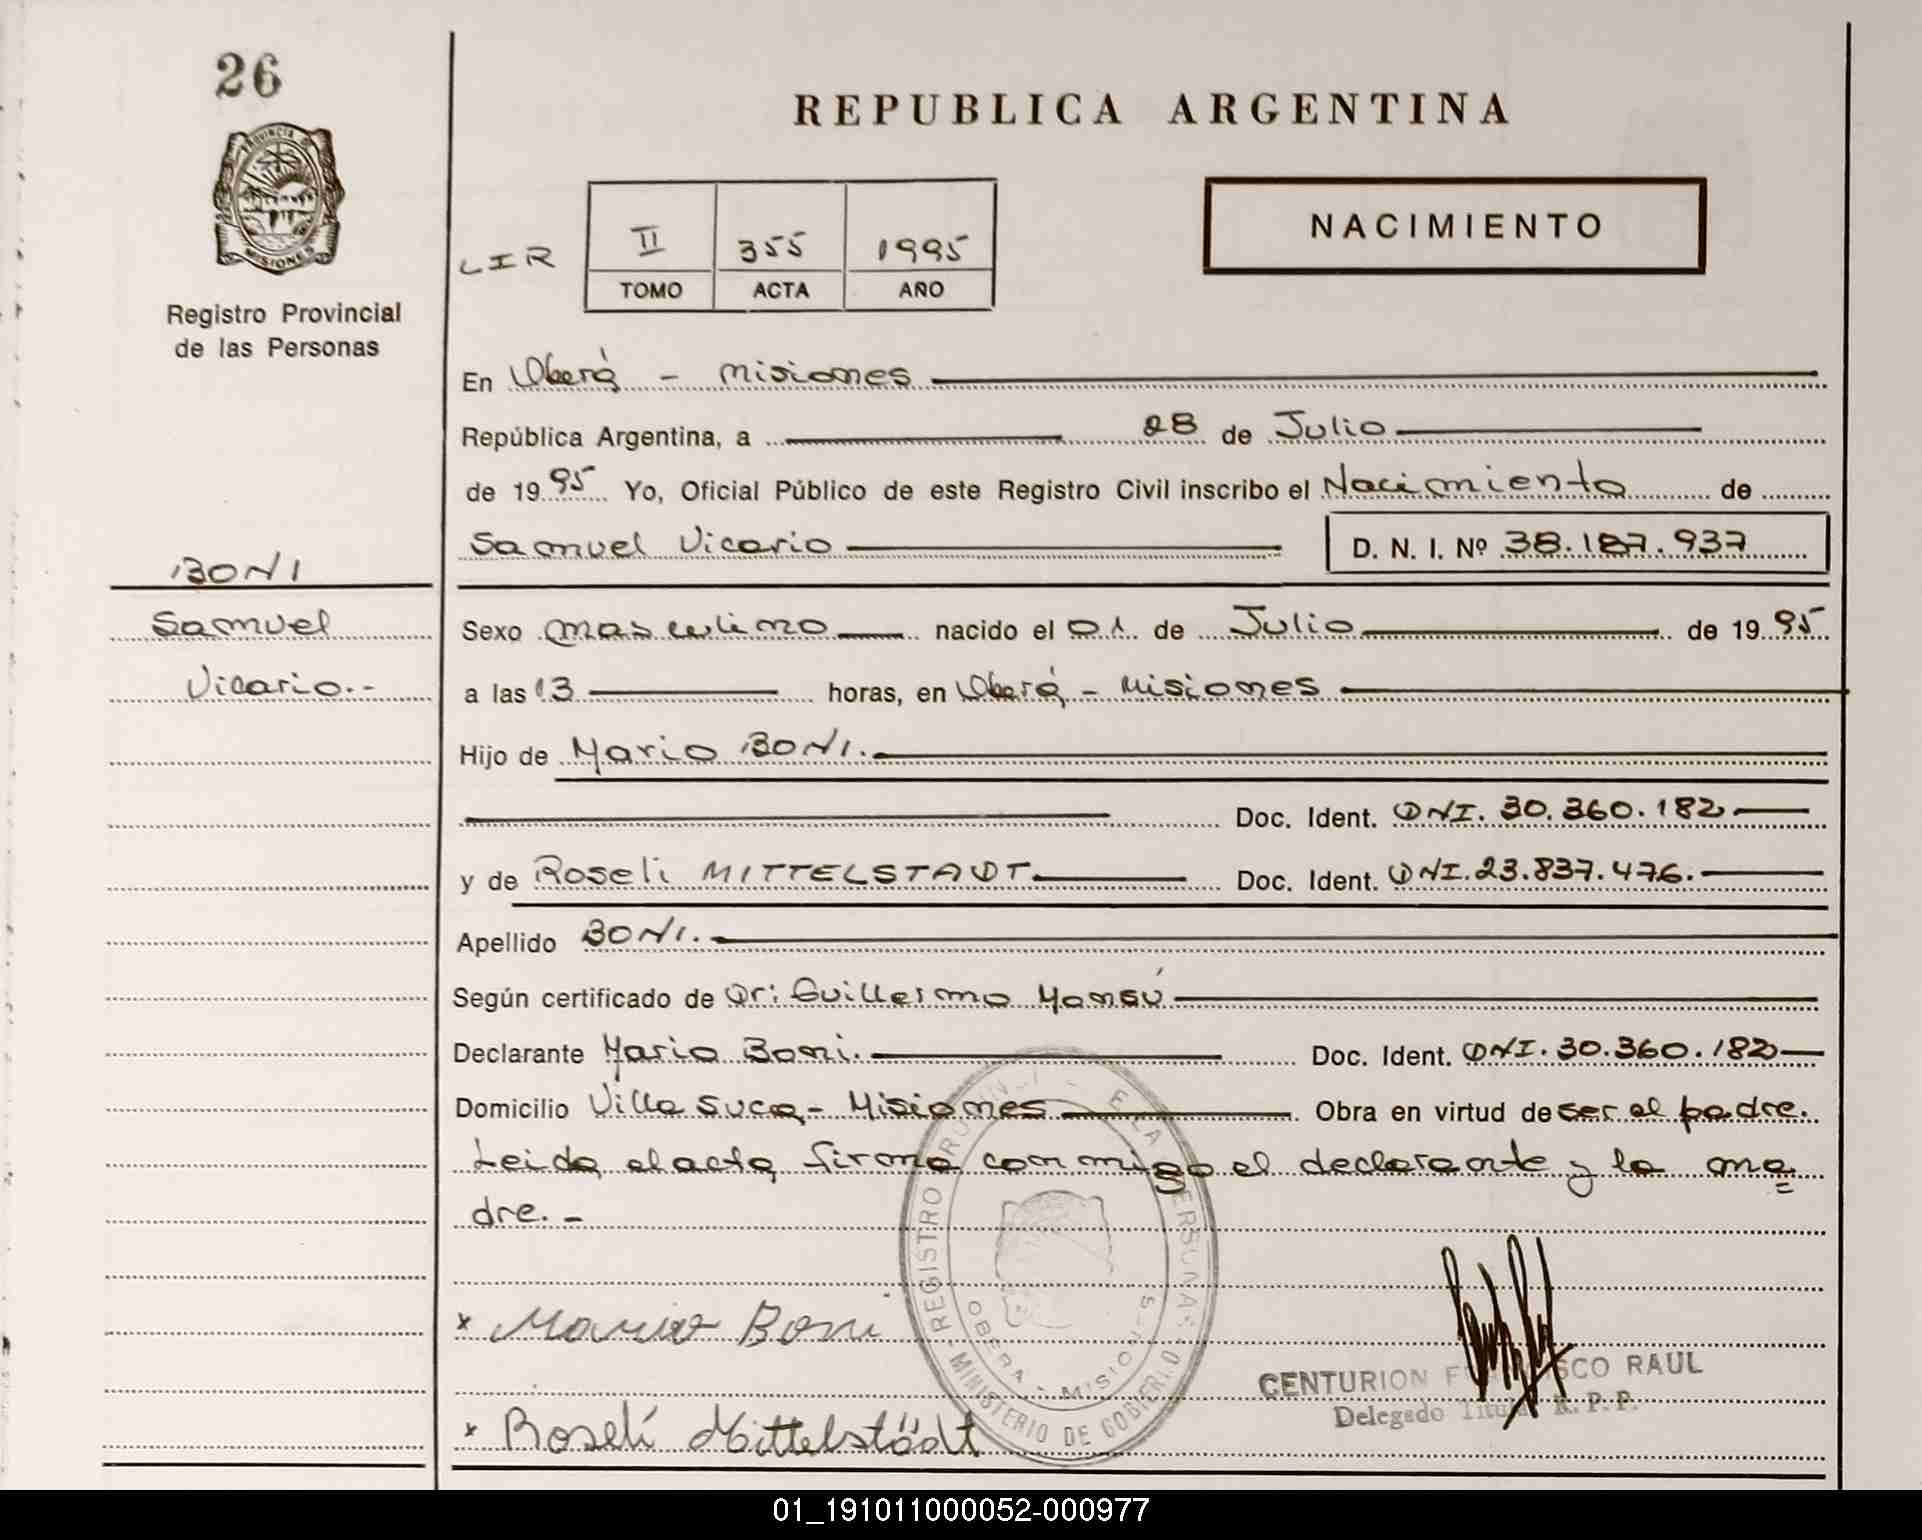 26
REPUBLICA ARGENTINA
PROVINCIA DE
MISIONES
Registro Provincial
de las Personas
LIR
II 355 1995
TOMO ACTA AÑO
NACIMIENTO
En Oberá - Misiones
República Argentina, a 28 de Julio
de 1995 Yo, Oficial Público de este Registro Civil inscribo el Nacimiento de
Samuel Vicario D. N. I. Nº 38.187.937
BONI
Samuel
Vicario.-
Sexo masculino nacido el 01 de Julio de 1995
a las 13 horas, en Oberá - Misiones
Hijo de Mario BONI.
Doc. Ident. DNI. 30.360.182
y de Roseli MITTELSTADT Doc. Ident. DNI. 23.837.476.
Apellido BONI.
Según certificado de Dr: Guillermo
Declarante Mario Boni. Doc. Ident. DNI. 30.360.182
Domicilio Villa Suca - Misiones Obra en virtud de ser el padre.
Leida el acta, firma conmigo el declarante y la ma=
dre. -
x Mario Boni
x Roselí Mittelstädt
REGISTRO DE LAS PERSONAS
MINISTERIO DE GOBIERNO
OBERA - MISIONES
CENTURION FRANCISCO RAUL
Delegado Titular R. P. P.
01_191011000052-000977